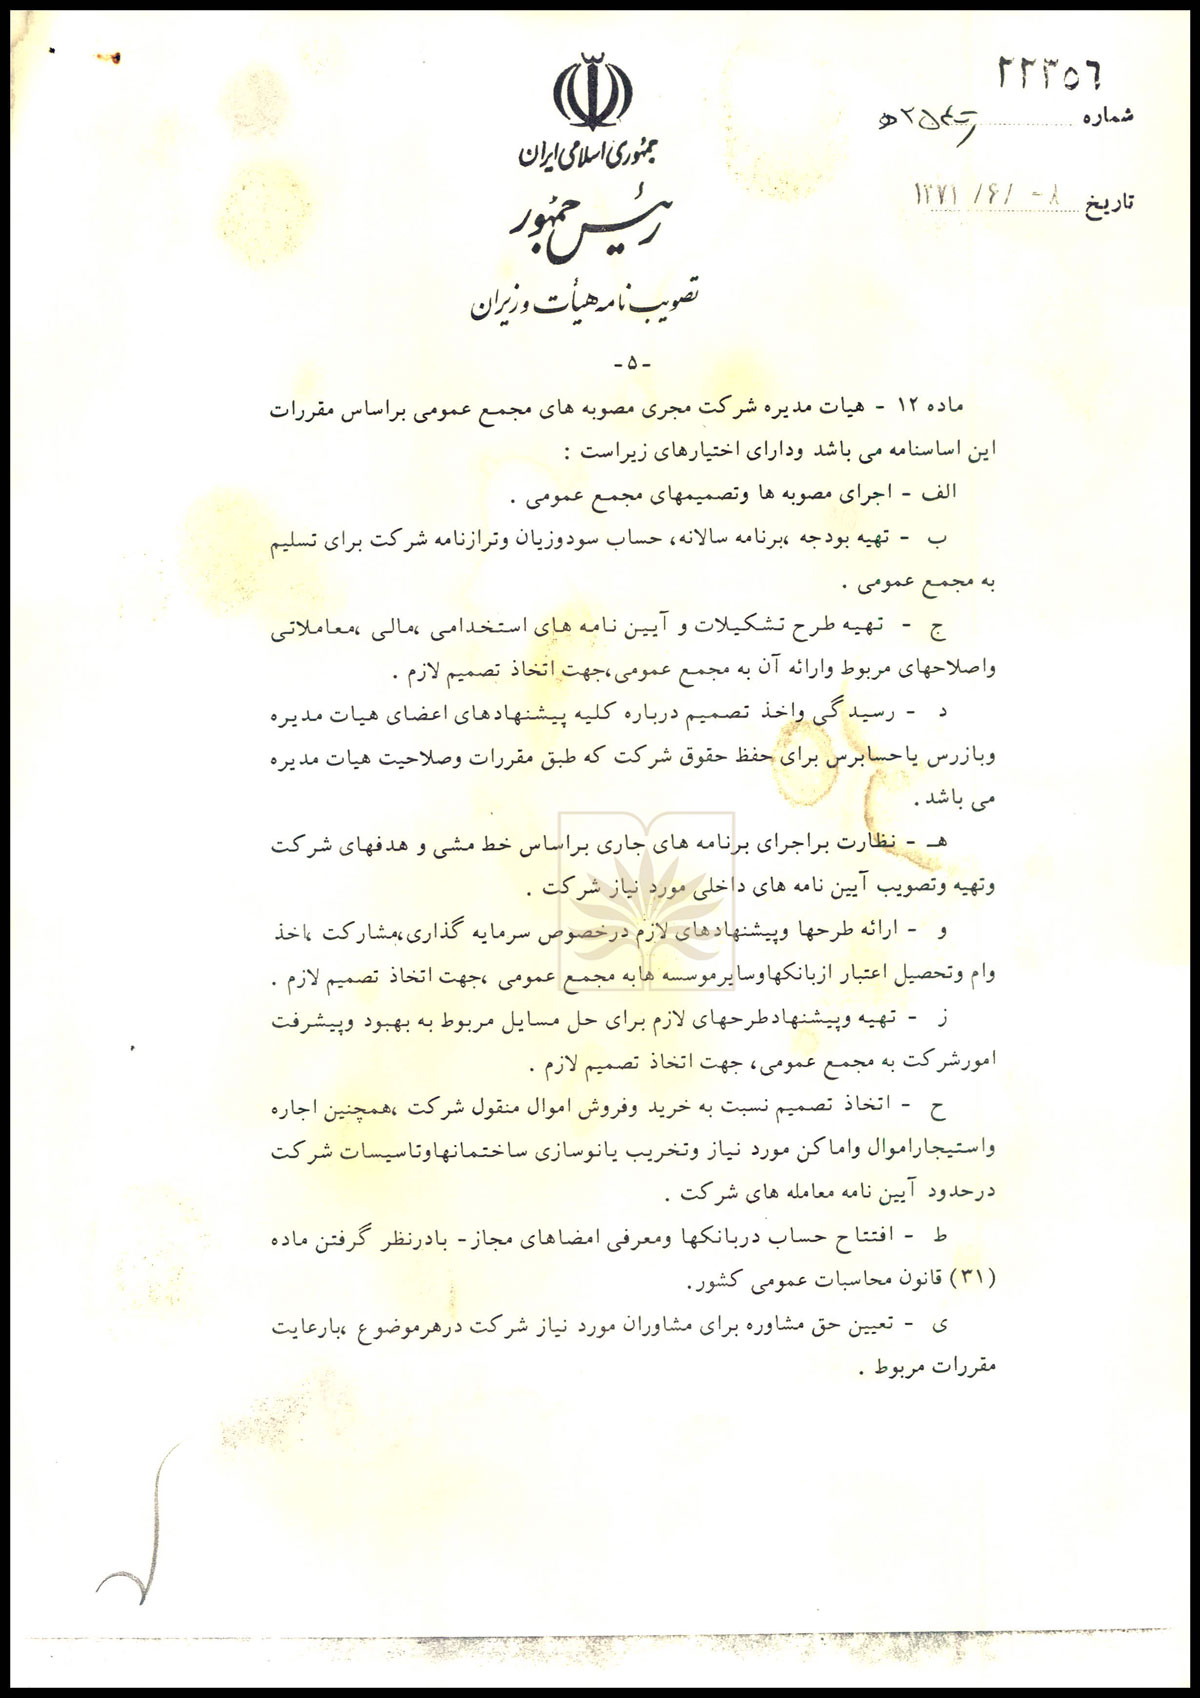 ۲۲۳۵۶
شماره
تاریخ ۱۳۷۱/۶/-۸
جمهوری اسلامی ایران
رئیس جمهور
تصویب نامه هیأت وزیران
-۵-
ماده ۱۲ - هیات مدیره شرکت مجری مصوبه های مجمع عمومی براساس مقررات
این اساسنامه می باشد ودارای اختیارهای زیراست :
الف - اجرای مصوبه ها وتصمیمهای مجمع عمومی .
ب - تهیه بودجه ،برنامه سالانه، حساب سودوزیان وترازنامه شرکت برای تسلیم
به مجمع عمومی .
ج - تهیه طرح تشکیلات و آیین نامه های استخدامی ،مالی ،معاملاتی
واصلاحهای مربوط وارائه آن به مجمع عمومی،جهت اتخاذ تصمیم لازم .
د - رسیدگی واخذ تصمیم درباره کلیه پیشنهادهای اعضای هیات مدیره
وبازرس یاحسابرس برای حفظ حقوق شرکت که طبق مقررات وصلاحیت هیات مدیره
می باشد .
هـ - نظارت براجرای برنامه های جاری براساس خط مشی و هدفهای شرکت
وتهیه وتصویب آیین نامه های داخلی مورد نیاز شرکت .
و - ارائه طرحها وپیشنهادهای لازم درخصوص سرمایه گذاری،مشارکت ،اخذ
وام وتحصیل اعتبار ازبانکهاوسایرموسسه هابه مجمع عمومی ،جهت اتخاذ تصمیم لازم .
ز - تهیه وپیشنهادطرحهای لازم برای حل مسایل مربوط به بهبود وپیشرفت
امورشرکت به مجمع عمومی، جهت اتخاذ تصمیم لازم .
ح - اتخاذ تصمیم نسبت به خرید وفروش اموال منقول شرکت ،همچنین اجاره
واستیجاراموال واماکن مورد نیاز وتخریب یانوسازی ساختمانهاوتاسیسات شرکت
درحدود آیین نامه معامله های شرکت .
ط - افتتاح حساب دربانکها ومعرفی امضاهای مجاز- بادرنظر گرفتن ماده
(۳۱) قانون محاسبات عمومی کشور.
ی - تعیین حق مشاوره برای مشاوران مورد نیاز شرکت درهرموضوع ،بارعایت
مقررات مربوط .